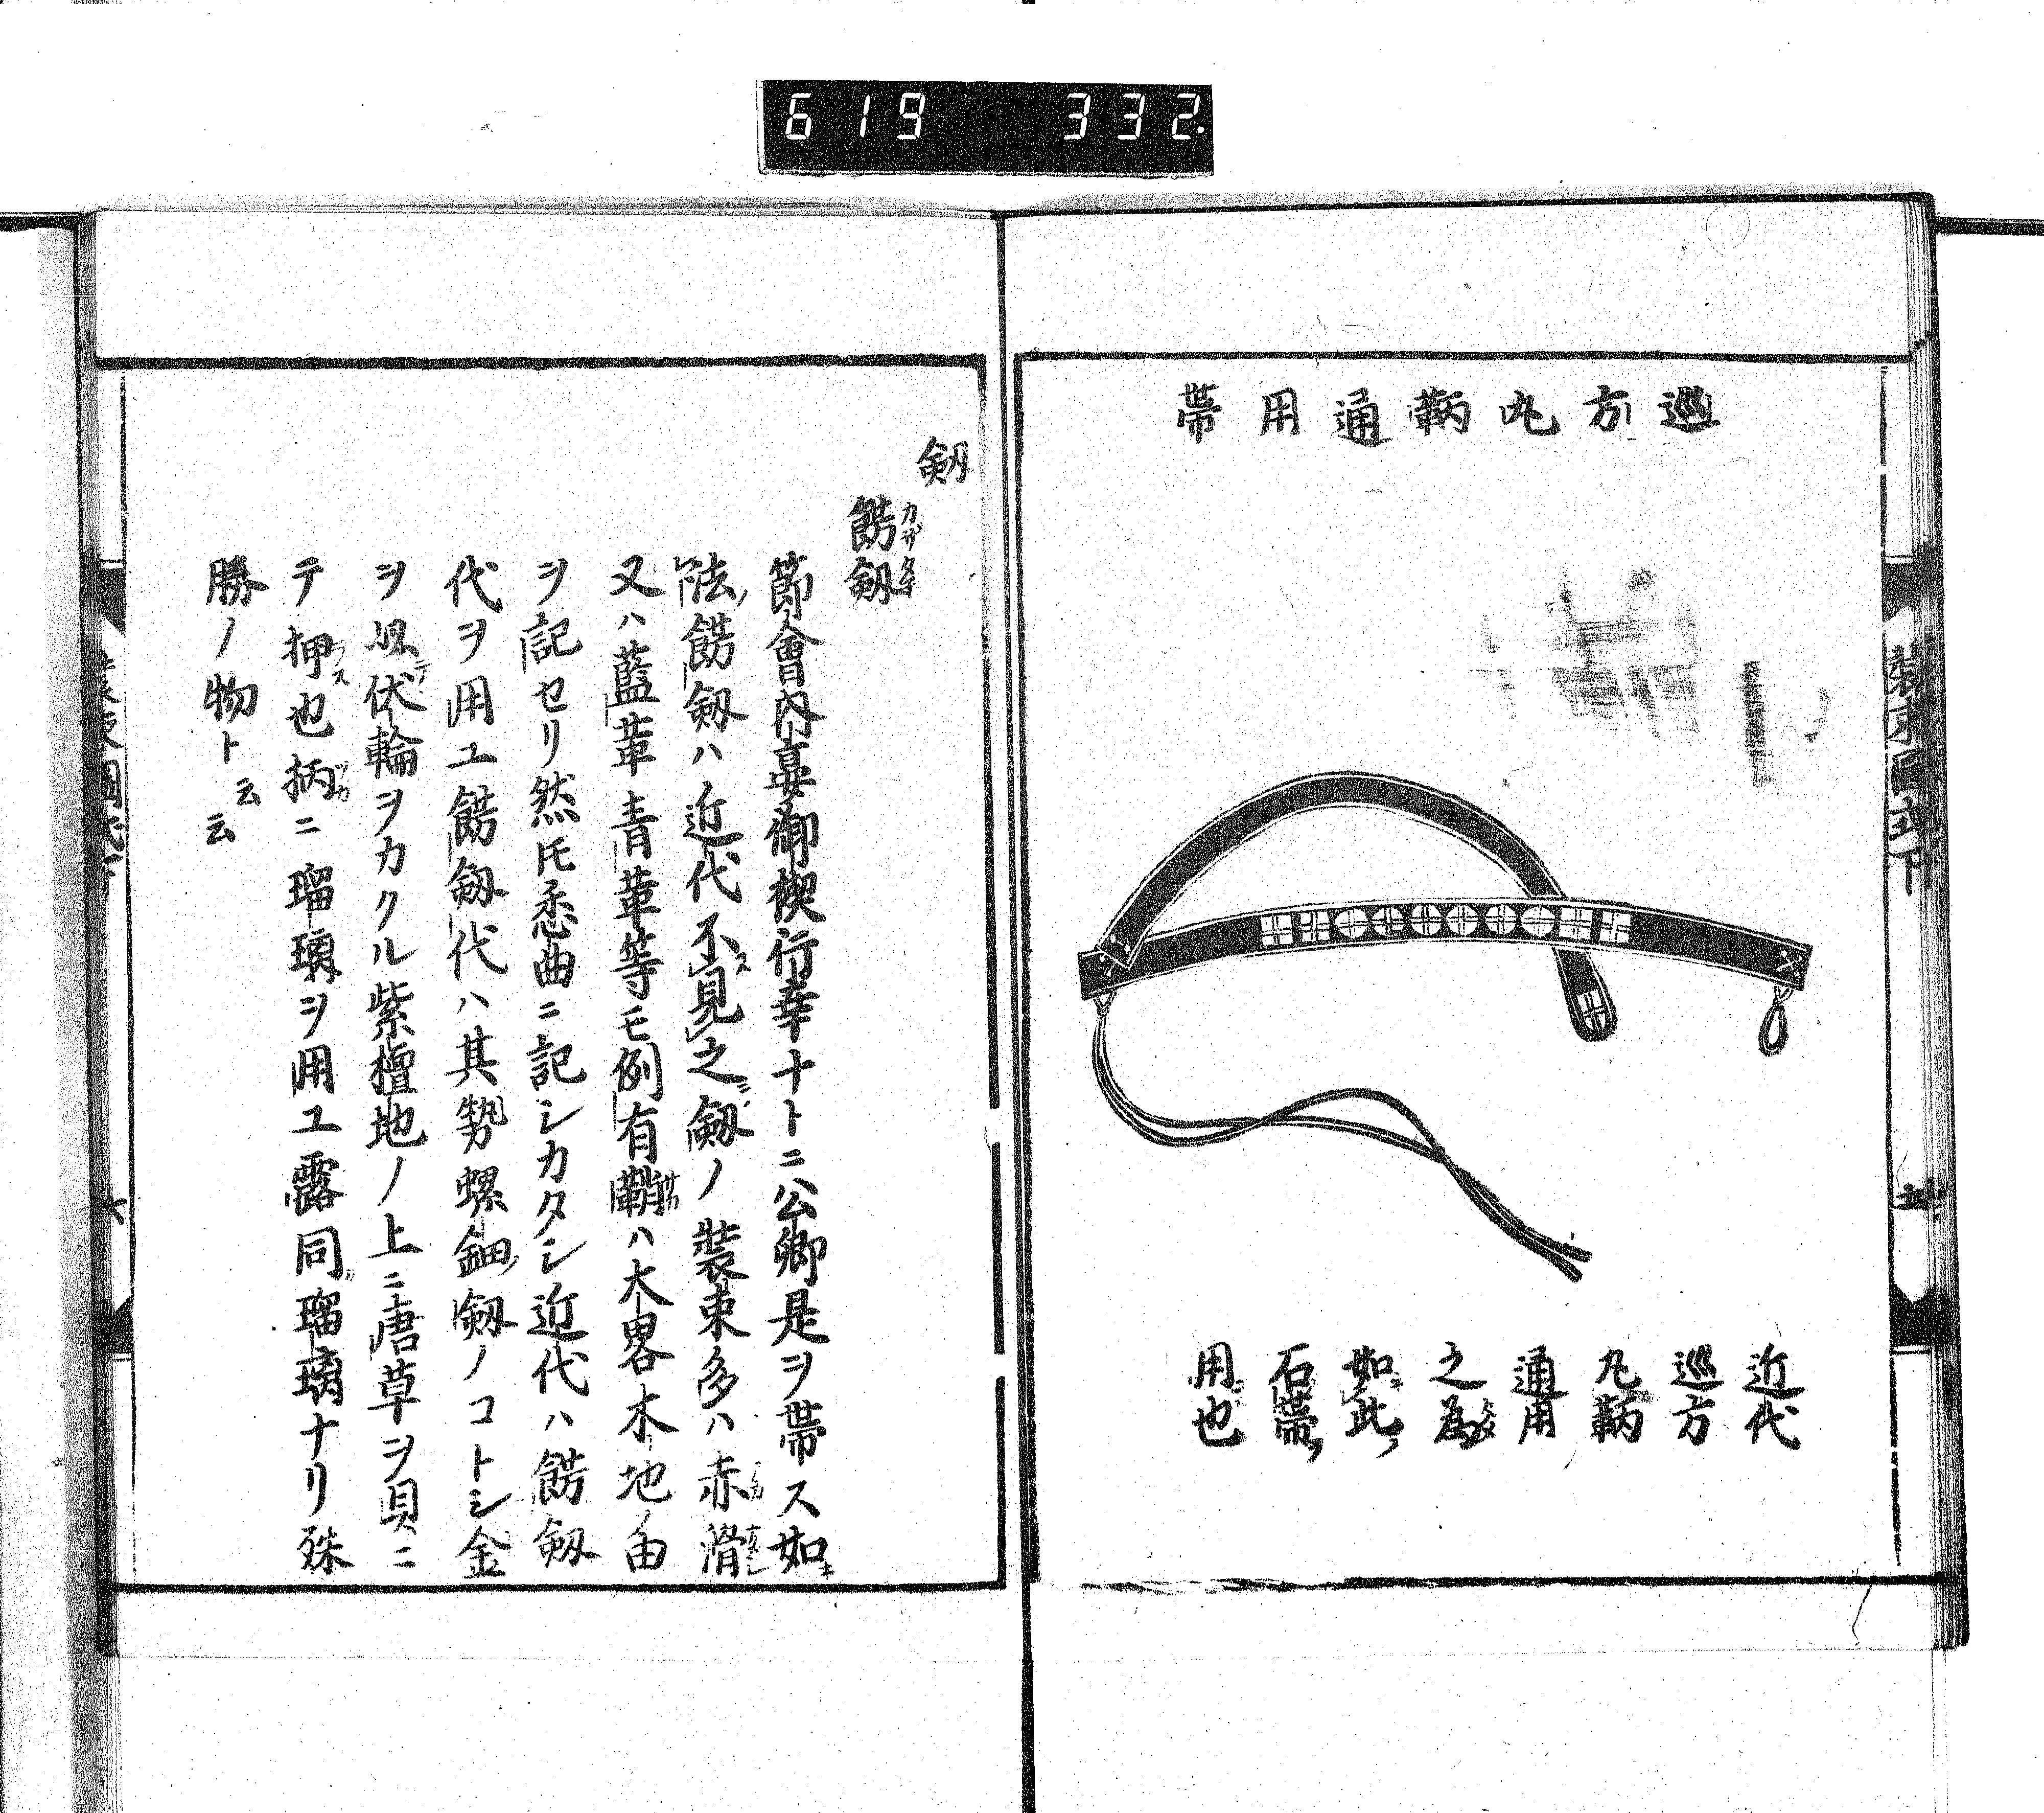 619 332
巡方丸鞆通用帯
近代
巡方
丸鞆
通用
之為
如此
石帯
用也
装束図式下
五
剱
餝剱
カザタチ
節會内宴御禊行幸ナトニ公卿是ヲ帯ス如
法餝剱ハ近代不見之剱ノ装束多ハ赤滑
又ハ藍革青革等モ例有鞘ハ大畧木地ノ由
ヲ記セリ然𪜈委曲ニ記シカタシ近代ハ餝剱
代ヲ用ユ餝剱代ハ其勢螺鈿剱ノコトシ金
ヲ以伏輪ヲカクル紫檀地ノ上ニ唐草ヲ貝ニ
テ押也柄ニ瑠璃ヲ用ユ露同瑠璃ナリ殊
勝ノ物ト云云